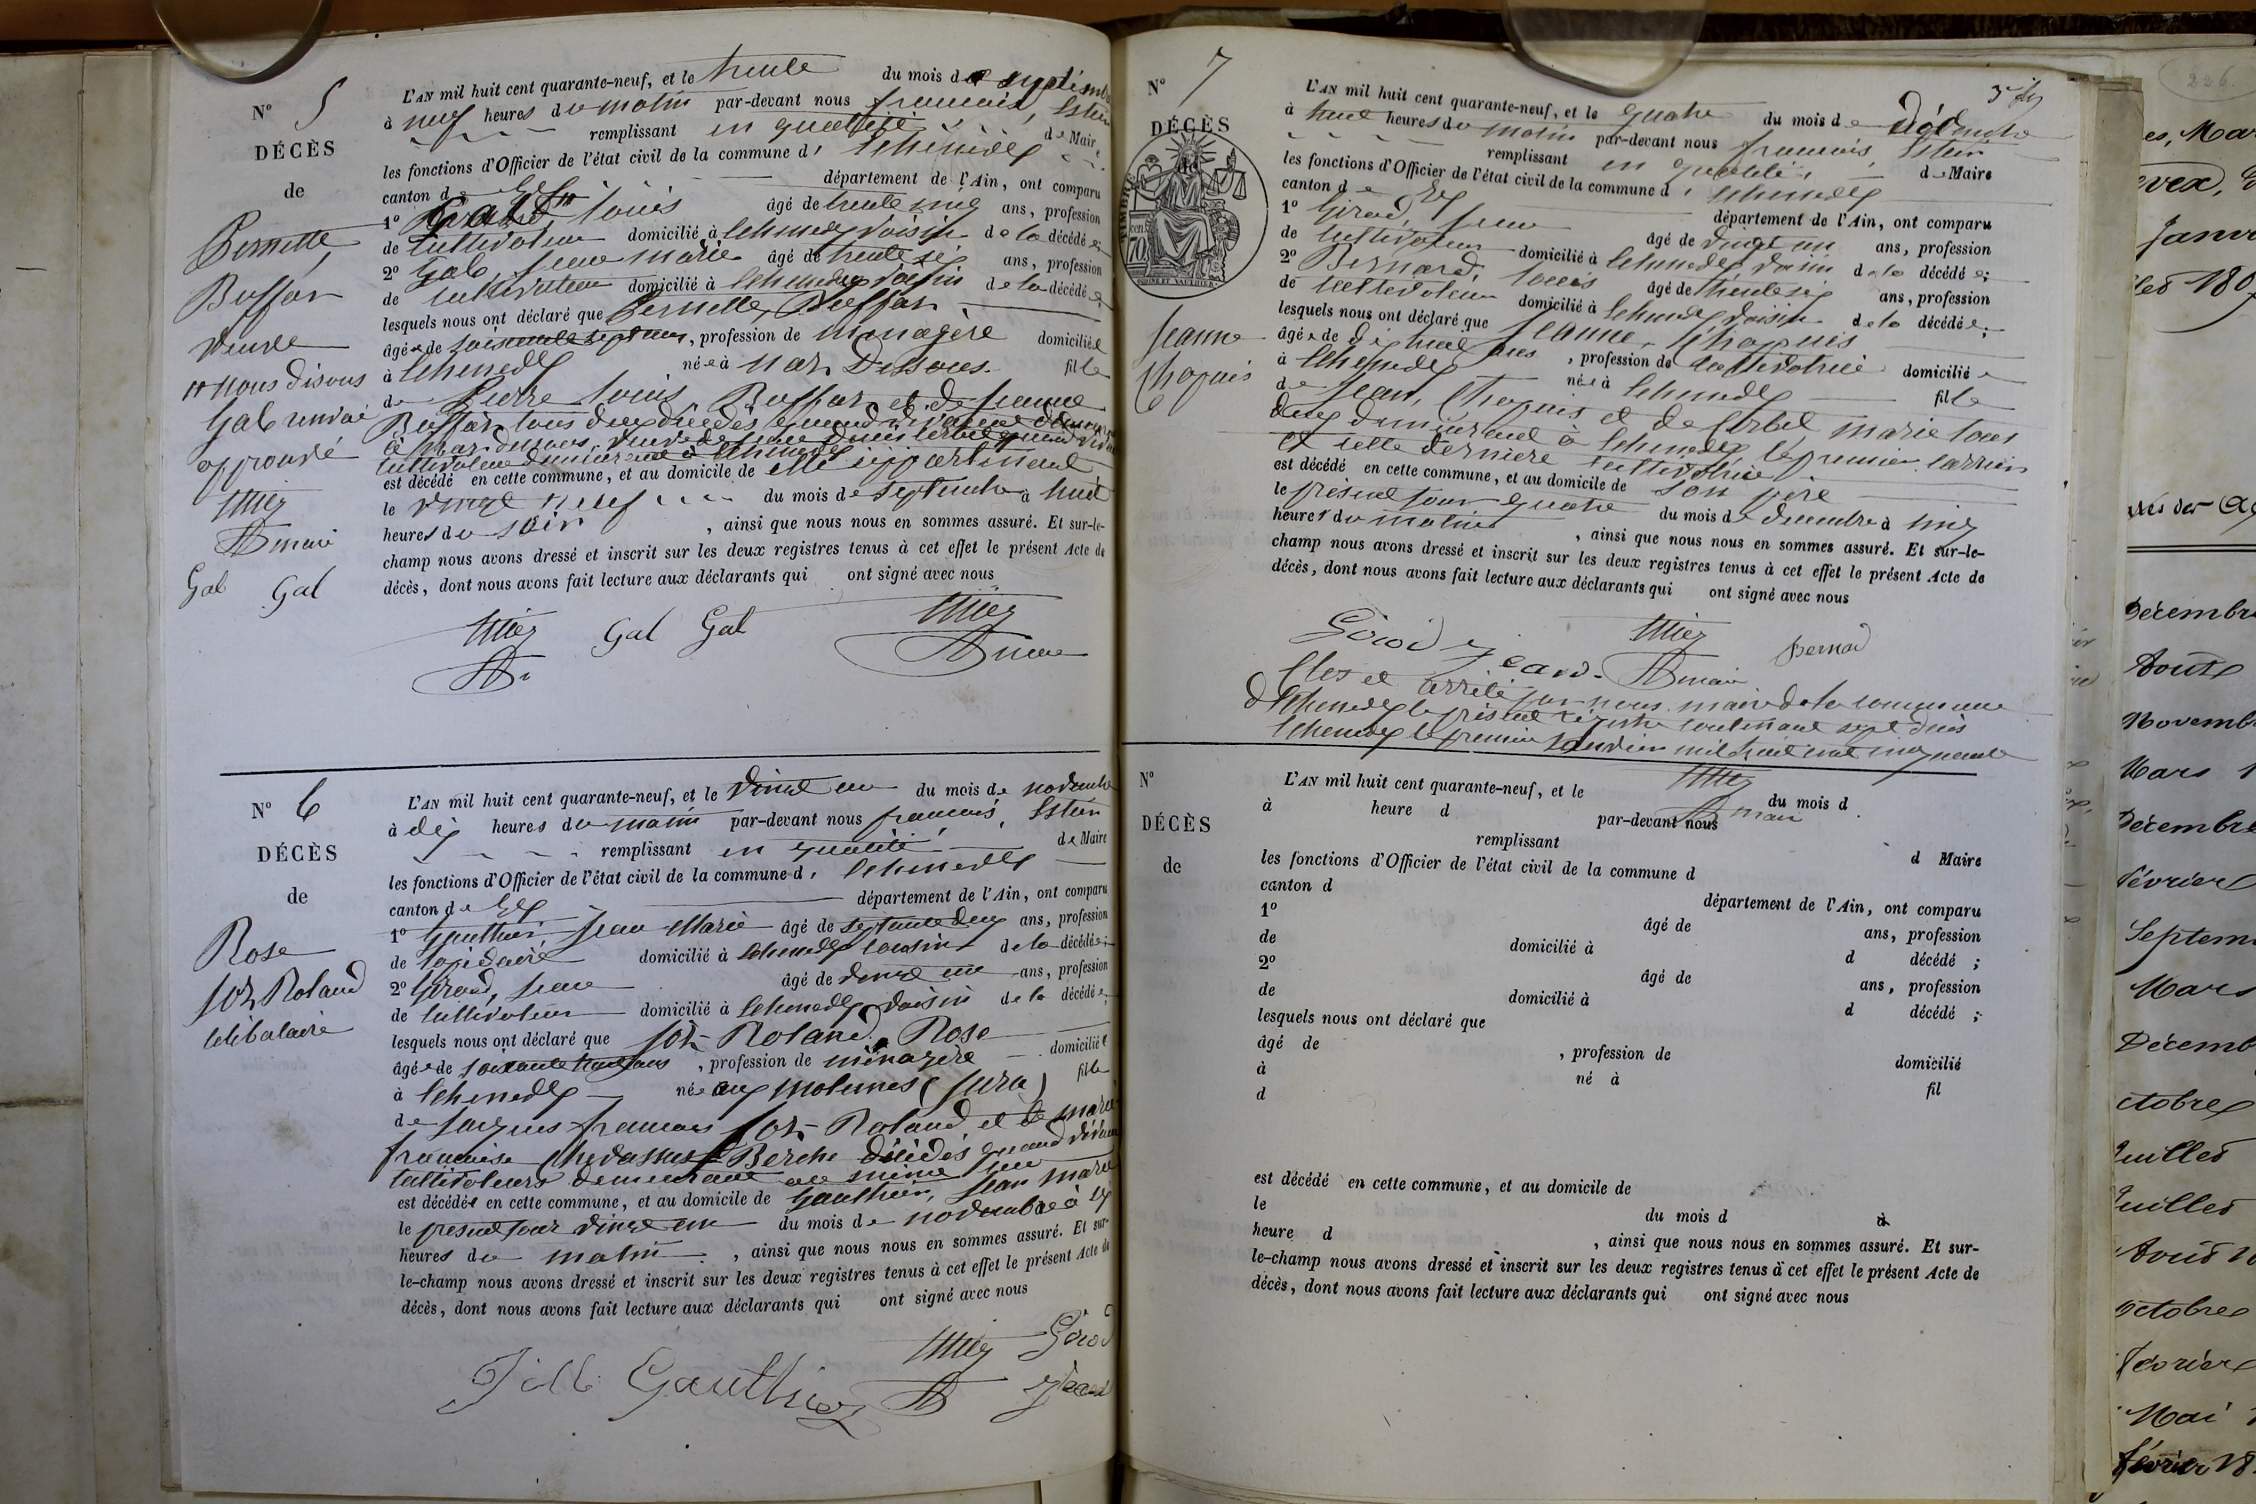 N° 5
DÉCÈS
de
Pernette
Buffar
veuve
nous disons
Gab
approuvé
maire
Gal Gal
L'AN mil huit cent quarante-neuf, et le trente du mois de septembre
à neuf heures du matin par-devant nous francois,
remplissant en qualité de Maire
les fonctions d'Officier de l'état civil de la commune d' Echenevex
canton de Gex département de l'Ain, ont comparu
1° louis âgé de trente cinq ans, profession
de cultivateur domicilié à Echenevex voisin de la décédée
2° Gab, jean marie âgé de trente six ans, profession
de cultivateur domicilié à Echenevex voisin de la décédée
lesquels nous ont déclaré que Pernette Buffar
âgée de soixante sept ans, profession de ménagère domiciliée
à Echenevex née à fille
de Pierre louis Buffar et de jeanne
Buffar tous deux décédés quand vivaient
cultivateur demeurant à Echenevex
est décédé en cette commune, et au domicile de elle appartenant
le vingt neuf du mois de septembre à huit
heures du soir , ainsi que nous nous en sommes assuré. Et sur-le-
champ nous avons dressé et inscrit sur les deux registres tenus à cet effet le présent Acte de
décès, dont nous avons fait lecture aux déclarants qui ont signé avec nous
Gal Gal
maire
N° 6
DÉCÈS
de
Rose
Roland
célibataire
L'AN mil huit cent quarante-neuf, et le vingt un du mois de novembre
à dix heures du matin par-devant nous francois,
remplissant en qualité de Maire
les fonctions d'Officier de l'état civil de la commune d' Echenevex
canton de Gex département de l'Ain, ont comparu
1° Gauthier Jean Marie âgé de septante deux ans, profession
de lapidaire domicilié à Echenevex cousin de la décédée;
2° Girod, jean âgé de vingt un ans, profession
de cultivateur domicilié à Echenevex voisin de la décédée;
lesquels nous ont déclaré que Roland Rose
âgée de soixante ans , profession de ménagère domiciliée
à Echenevex née aux molunes (jura) fille
de jacques francois Roland et de marie
francoise Chevassus Berche décédés quand vivaient
cultivateurs demeurant au même lieu
est décédée en cette commune, et au domicile de Gauthier, jean marie
le présent jour vingt un du mois de novembre à six
heures du matin , ainsi que nous nous en sommes assuré. Et sur-
le-champ nous avons dressé et inscrit sur les deux registres tenus à cet effet le présent Acte de
décès, dont nous avons fait lecture aux déclarants qui ont signé avec nous
Girod
Gauthier
jean
N° 7
DÉCÈS
TIMBRE
70
Jeanne
Chapuis
L'AN mil huit cent quarante-neuf, et le quatre du mois de décembre
à huit heures du matin par-devant nous francois,
remplissant en qualité, de Maire
les fonctions d'Officier de l'état civil de la commune d' Echenevex
canton de Gex département de l'Ain, ont comparu
1° Girod, jean âgé de vingt un ans, profession
de cultivateur domicilié à Echenevex voisin de la décédée;
2° Bernard, louis âgé de trente six ans, profession
de cultivateur domicilié à Echenevex voisin de la décédée;
lesquels nous ont déclaré que jeanne, Chapuis
âgée de dix huit ans , profession de cultivatrice domiciliée
à Echenevex née à Echenevex fille
de jean, Chapuis et de Corbet marie tous
deux demeurant à Echenevex le premier carrier
et celle dernière cultivatrice
est décédé en cette commune, et au domicile de son père
le présent jour quatre du mois de décembre à cinq
heures du matin , ainsi que nous nous en sommes assuré. Et sur-le-
champ nous avons dressé et inscrit sur les deux registres tenus à cet effet le présent Acte de
décès, dont nous avons fait lecture aux déclarants qui ont signé avec nous
Girod jean. maire Bernard
Clos et arrêté par nous maire de la commune
d'Echenevex le présent registre contenant sept décès
Echenevex le premier janvier mil huit cent cinquante
maire
N°
DÉCÈS
de
L'AN mil huit cent quarante-neuf, et le du mois d
à heure d par-devant nous
remplissant d Maire
les fonctions d'Officier de l'état civil de la commune d
canton d département de l'Ain, ont comparu
1° âgé de ans, profession
de domicilié à d décédé ;
2° âgé de ans, profession
de domicilié à d décédé ;
lesquels nous ont déclaré que
âgé de , profession de domicilié
à né à fil
d
est décédé en cette commune, et au domicile de
le du mois d à
heure d , ainsi que nous nous en sommes assuré. Et sur-
le-champ nous avons dressé et inscrit sur les deux registres tenus à cet effet le présent Acte de
décès, dont nous avons fait lecture aux déclarants qui ont signé avec nous
226
Décembre
Août
Novemb
Mars
Décembre
février
Septem
Mars
Décemb
ctobre
uillet
uillet
Août
octobre
février
Mai
février 18